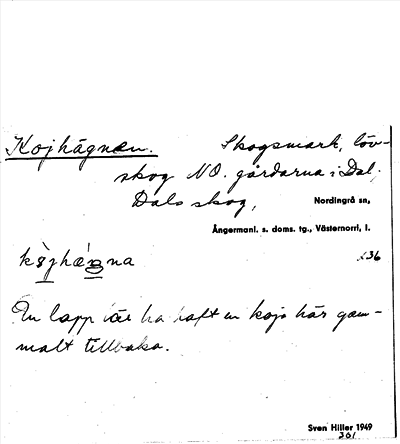 Kojhägnen. Skogsmark, löv-
skog NO. gårdarna i Dal,
Dals skog, Nordingrå sn,
Ångermanl. s. doms. tg., Västernorrl. l.
236
En lapp lär ha haft en koja här gam-
malt tillbaka.
Sven Hiller 1949
361